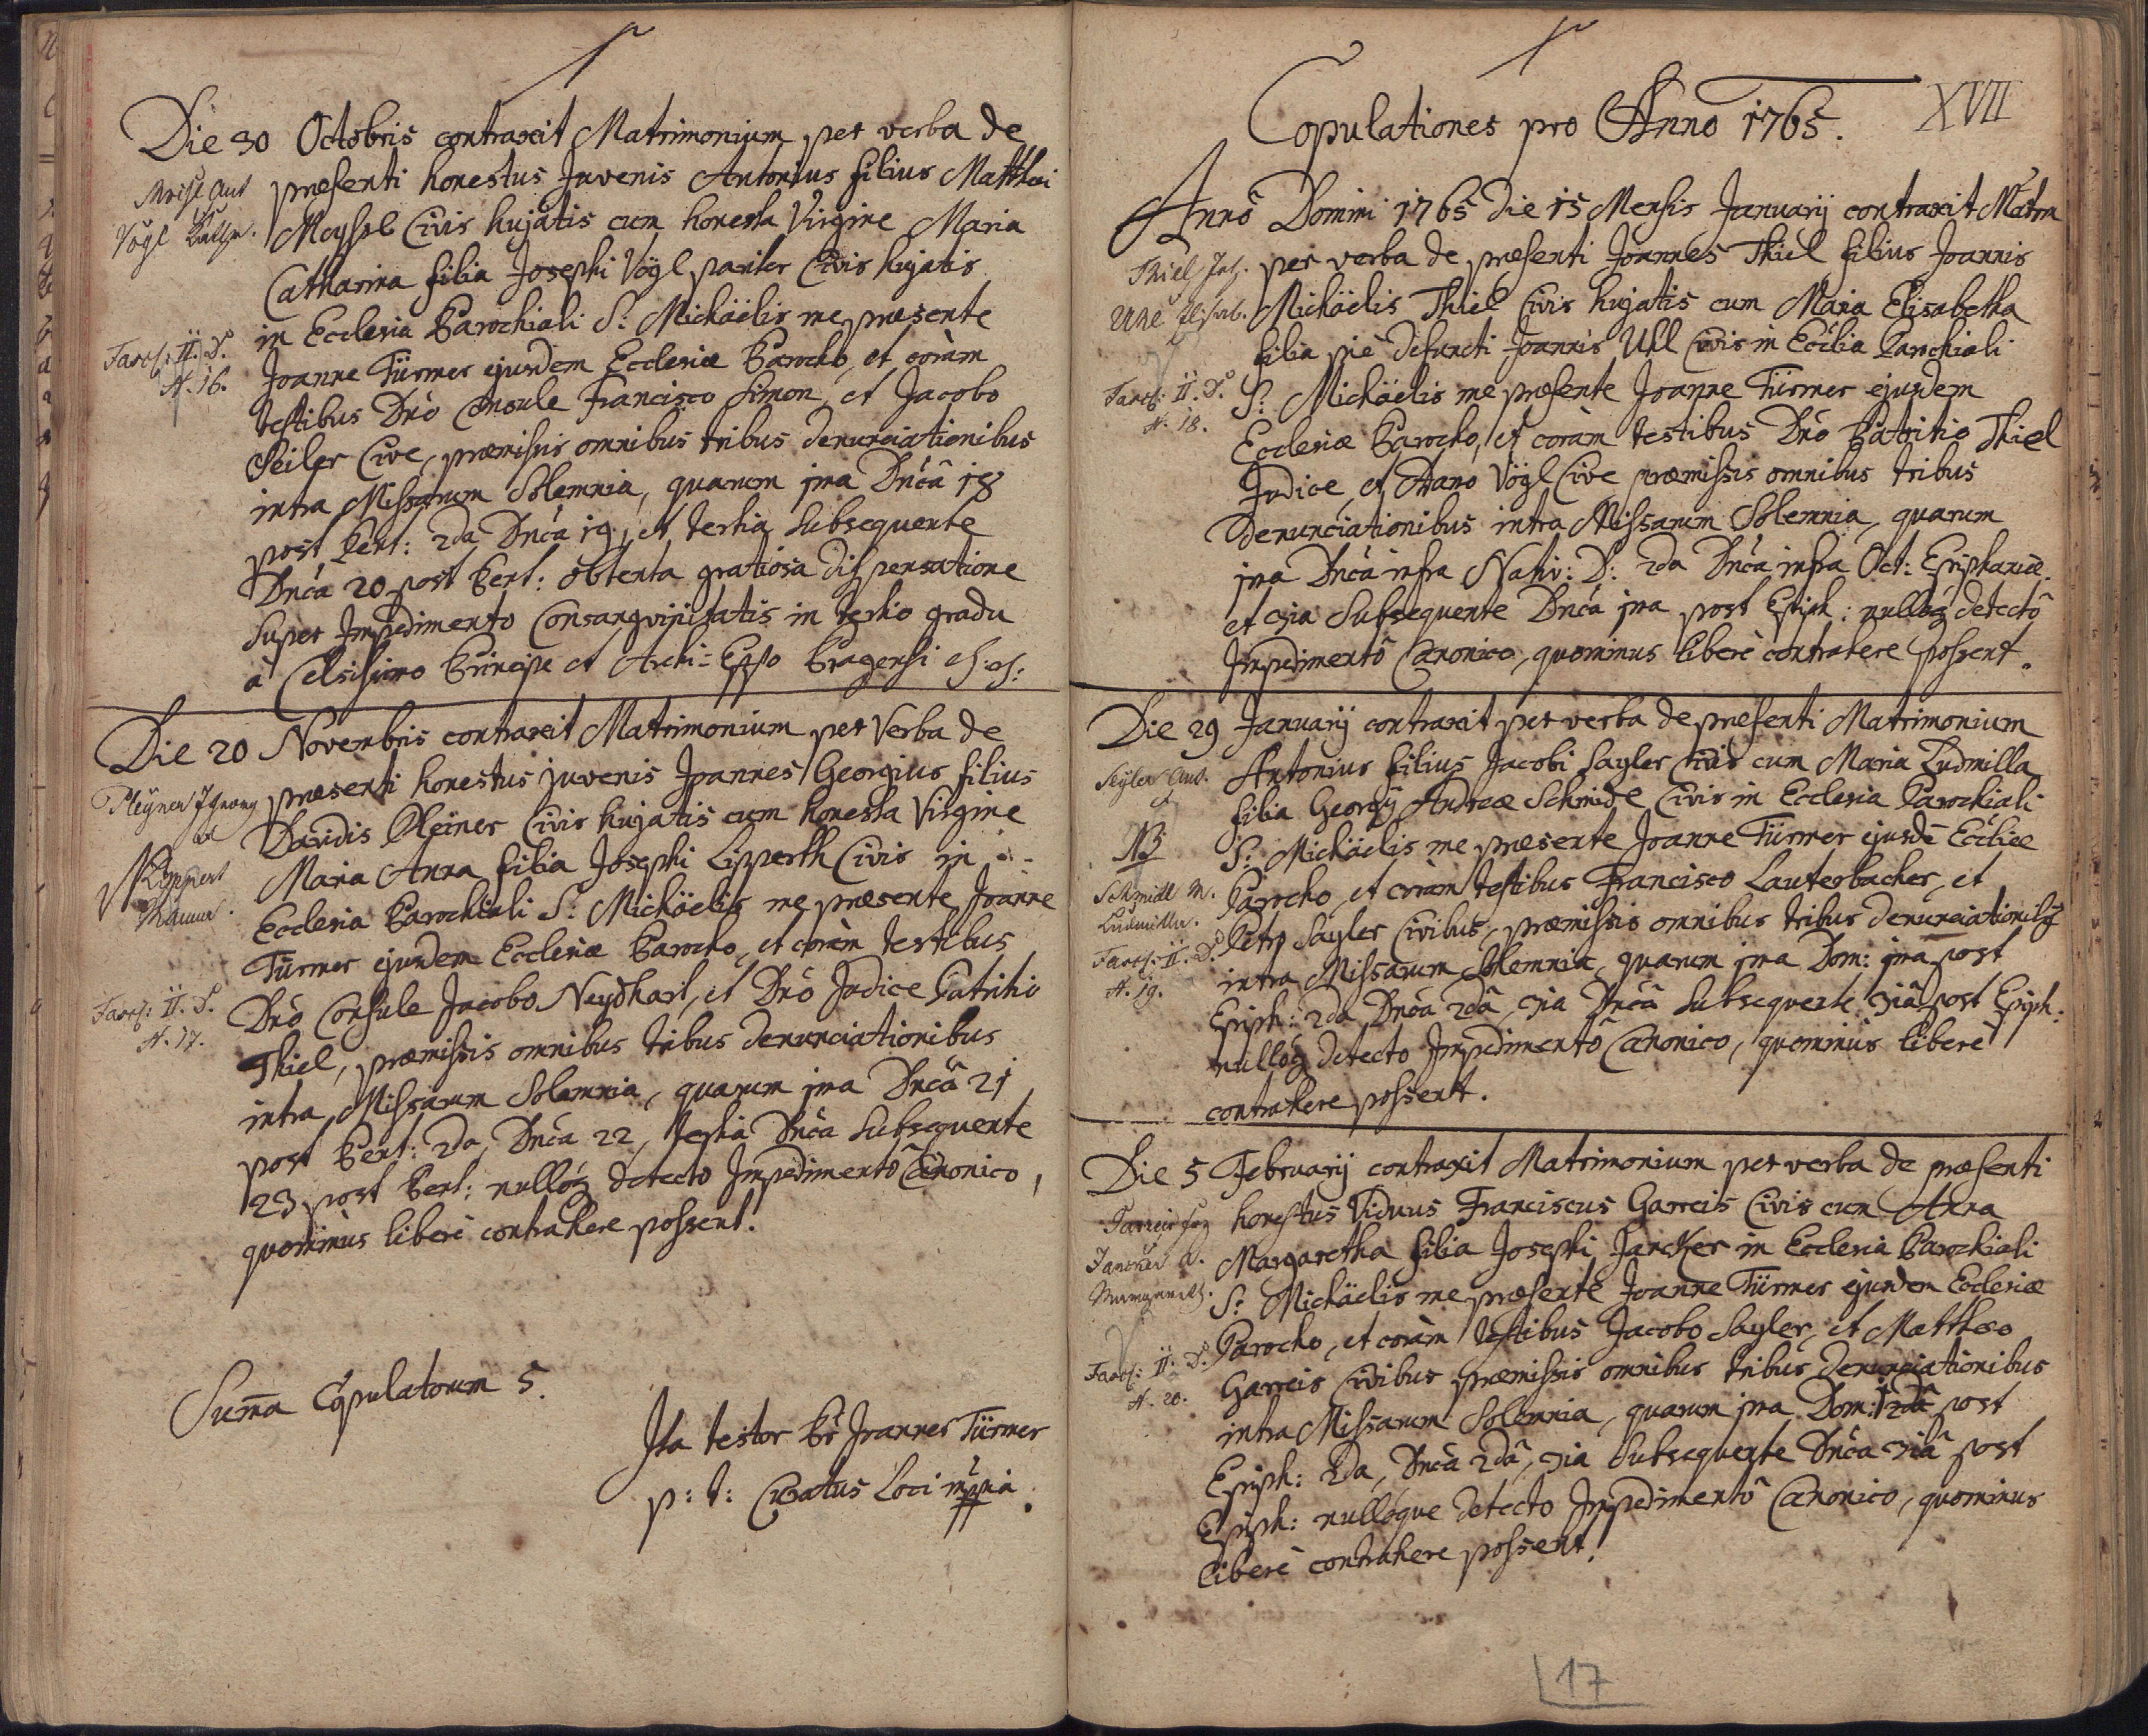 Die 30 Octobris contraxit Matrimonium per verba de
præsenti honestus Juvenis Antonius filius Matthæi
Vögl Cathr.
Moysel Civis hujatis cum honesta Virgine Maria
Catharina filia Josephi Vögl pariter Civis hujatis
in Ecclesia Parochiali S: Michäelis me præsente
Fasc: II. D.
N. 16.
Joanne Türmer ejusdem Ecclesiæ Parocho, et coràm
testibus Dnô Consule Francisco Simon, et Jacobo
Seiler Cive, præmissis omnibus tribus denunciationibus
intra Missarum Solemnia, quarum jma Dnĉa 18
post Pent: 2da Dnĉa 19, et tertia subsequente
Dnĉa 20 post Pent: obtenta gratiosa dispensatione
super Impedimento Consangvinitatis in tertio gradu
à Celsissimo Principe et Archi-Eppo Pragensi
Die 20 Novembris contraxit Matrimonium per Verba de
Pleyner
præsenti honestus juvenis Joannes Georgius filius
Davidis Pleiner Civis hujatis cum honesta Virgine
Lippert
Maria Anna filia Josephi Lipperth Civis in
Ecclesia Parochiali S: Michäelis me præsente Joanne
Türmer ejusdem Ecclesiæ Parocho, et coràm testibus
Fasc: II. D.
N. 17.
Dnô Consule Jacobo Neydhart, et Dnô Judice Patritio
Thiel, præmissis omnibus tribus denunciationibus
intra Missarum Solemnia, quarum jma Dnĉâ 21
post Pent: 2da Dnĉa 22, tertia Dnĉa subsequente
23 post Pent: nullóq detecto Impedimentô Canonico,
quominùs liberè contrahere possent.
Sum̄a Copulatorum 5.
Ita testor Pr Joannes Türmer
p: t: Curatus Loci mppria
Copulationes pro Anno 1765.
XVII
Annô Domini 1765 die 15 Mensis Januarij contraxit Matrm
Thiel Joh.
per verba de præsenti Joannes Thiel filius Joannis
Michäelis Thiel Civis hujatis cum Maria Elisabetha
filia piè defuncti Joannis Uhl Civis in Ecclia Parochiali
Fasc: II. D.
N. 18.
S: Michäelis me præsente Joanne Türmer ejusdem
Ecclesiæ Parocho, et coràm testibus Dnô Patritio Thiel
Judice, et Adamo Vögl Cive præmissis omnibus tribus
denunciationibus intra Missarum Solemnia, quarum
jma Dnĉa infra Nativ: D: 2da Dnĉa infra Oct: Epiphaniæ.
et 3ia subsequente Dnĉa jma post Epiph: nullóq detectô
Impedimentô Canonico, quominus liberè contrahere possent.
Die 29 Januarij contraxit per verba de præsenti Matrimonium
Seyler Ant.
Antonius filius Jacobi Sayler civis cum Maria Ludmilla
filia Georgij Andreæ Schmidt Civis in Ecclesia Parochiali
NB
S: Michäelis me præsente Joanne Türmer ejusdē Eccliæ
Schmidt M.
Ludmilla.
Parocho, et coràm testibus Francisco Lauterbacher, et
Petro Sayler Civibus, præmissis omnibus tribus denunciationibq
Fasc: II. D.
N. 19.
intra Missarum Solemnia, quarum jma Dom: jma post
Epiph: 2da Dnĉa 2dâ, 3ia Dnĉâ subsequente 3iâ post Epiph:
nullóq detecto Impedimentô Canonico, quominùs liberè
contrahere possent.
Die 5 Februarij contraxit Matrimonium per verba de præsenti
honestus Viduus Franciscus Garreis Civis cum Anna
Jancker A.
Margareth.
Margaretha filia Josephi Jancker in Ecclesia Parochiali
S: Michäelis me præsente Joanne Türmer ejusdem Ecclesiæ
Parocho, et coràm testibus Jacobo Sayler, et Matthæo
Fasc: II. D.
N. 20.
Garreis Civibus præmissis omnibus tribus denunciationibus
intra Missarum Solemnia, quarum jma Dom: post
Epiph: 2da, Dnĉa 2dâ, 3ia subsequente Dnĉa 3iâ post
Epiph: nullóque detecto Impedimentô Canonico, quominus
liberè contrahere possent.
17